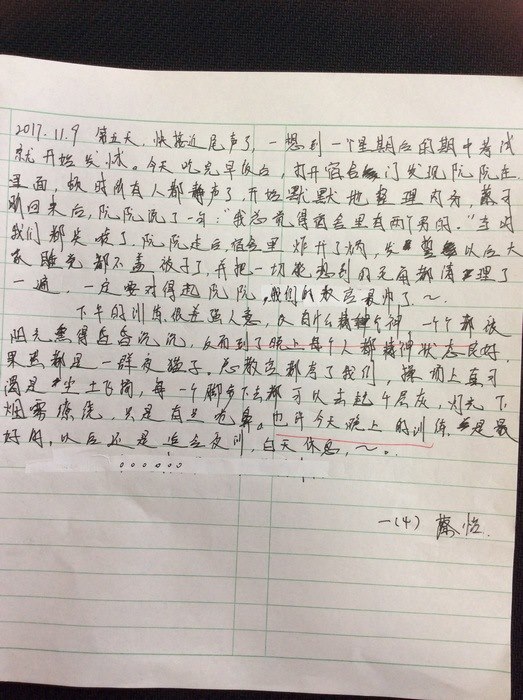 2017.11.9 第五天,快接近尾声了,一想到一个星期后的期中考试
就开始发愁。今天吃完早饭后,打开宿舍门发现阮阮在
里面,顿时所有人都静声了,开始默默地整理内务,蔡
刚回来后,阮阮说了一句:“我总觉得宿舍里有两个男的。”当时
我们都笑喷了,阮阮走后,宿舍里炸开了锅,发誓以后大
家睡觉都不盖被子了,并把一切能想到的死角都清理了
一遍,一定要对得起阮阮,我们的教官最帅了~
下午的训练很差强人意,没有什么精神,一个个都被
阳光照得昏昏沉沉,反而到了晚上每个人都精神状态良好,
果真都是一群夜猫子。总教官都夸了我们,操场上真可
谓是尘土飞扬,每一个脚步下去都可以去起千层灰,灯光下
烟雾缭绕,只是有点
也许今天晚上的训练是最
好的,以后还是适合夜训,白天休息,~。
一(4) 蔡怡